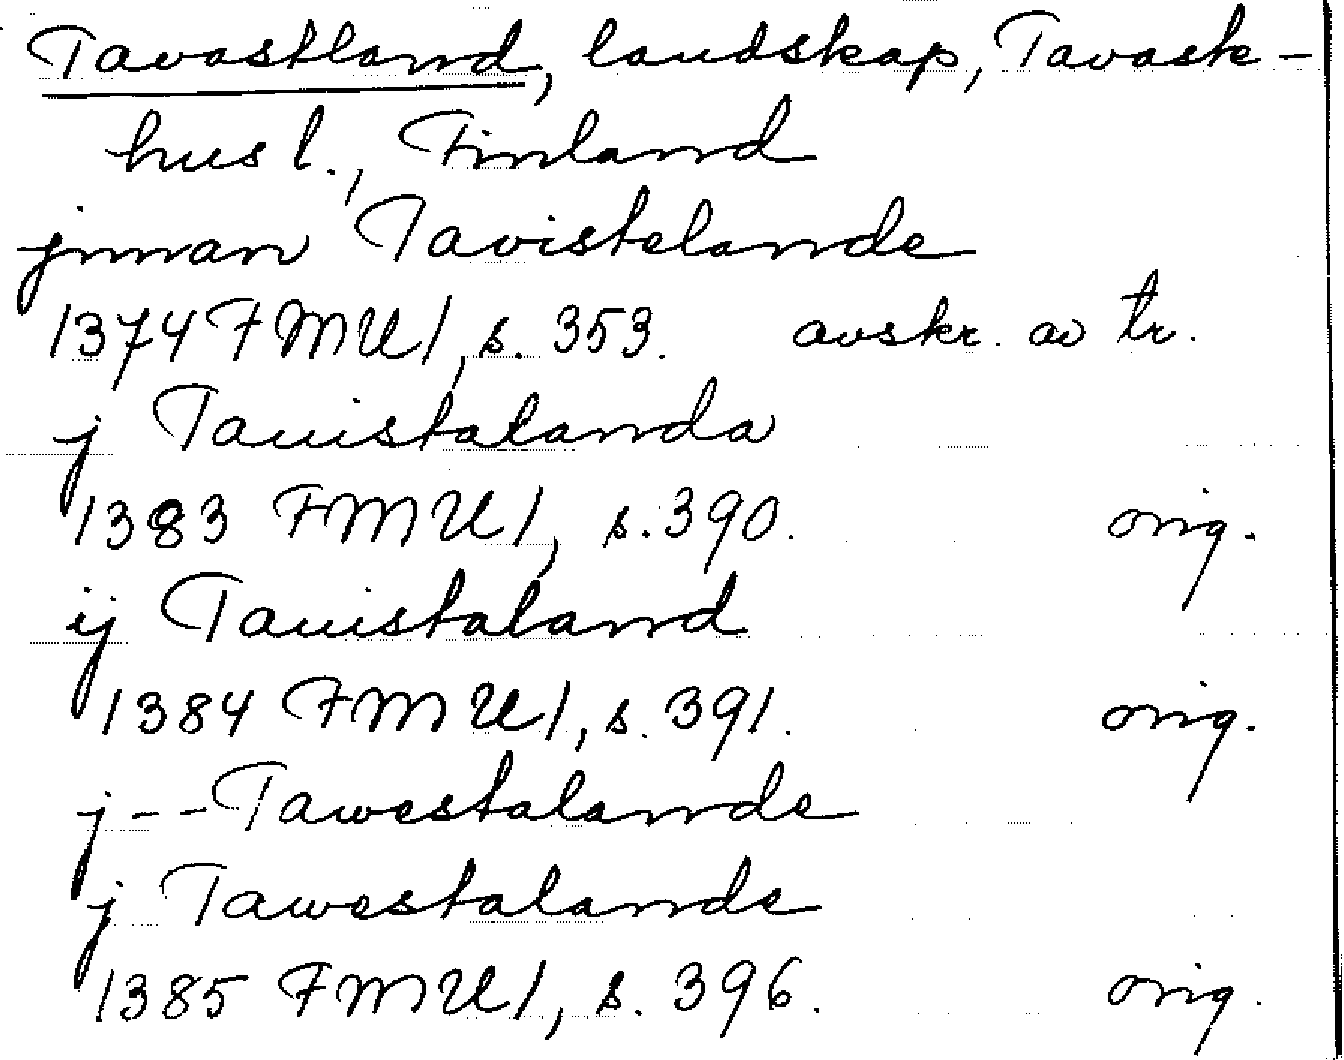 Tavastland, landskap, Tavast-
hus l., Finland
jnnan Tavistelande
1374 FMU 1, s. 353. avskr. av tr.
j Tauistalanda
1383 FMU 1, s. 390. orig.
ij Tauistaland
1384 FMU 1, s. 391. orig.
j -- Tawestalande
j Tawestalande
1385 FMU 1, s. 396. orig.